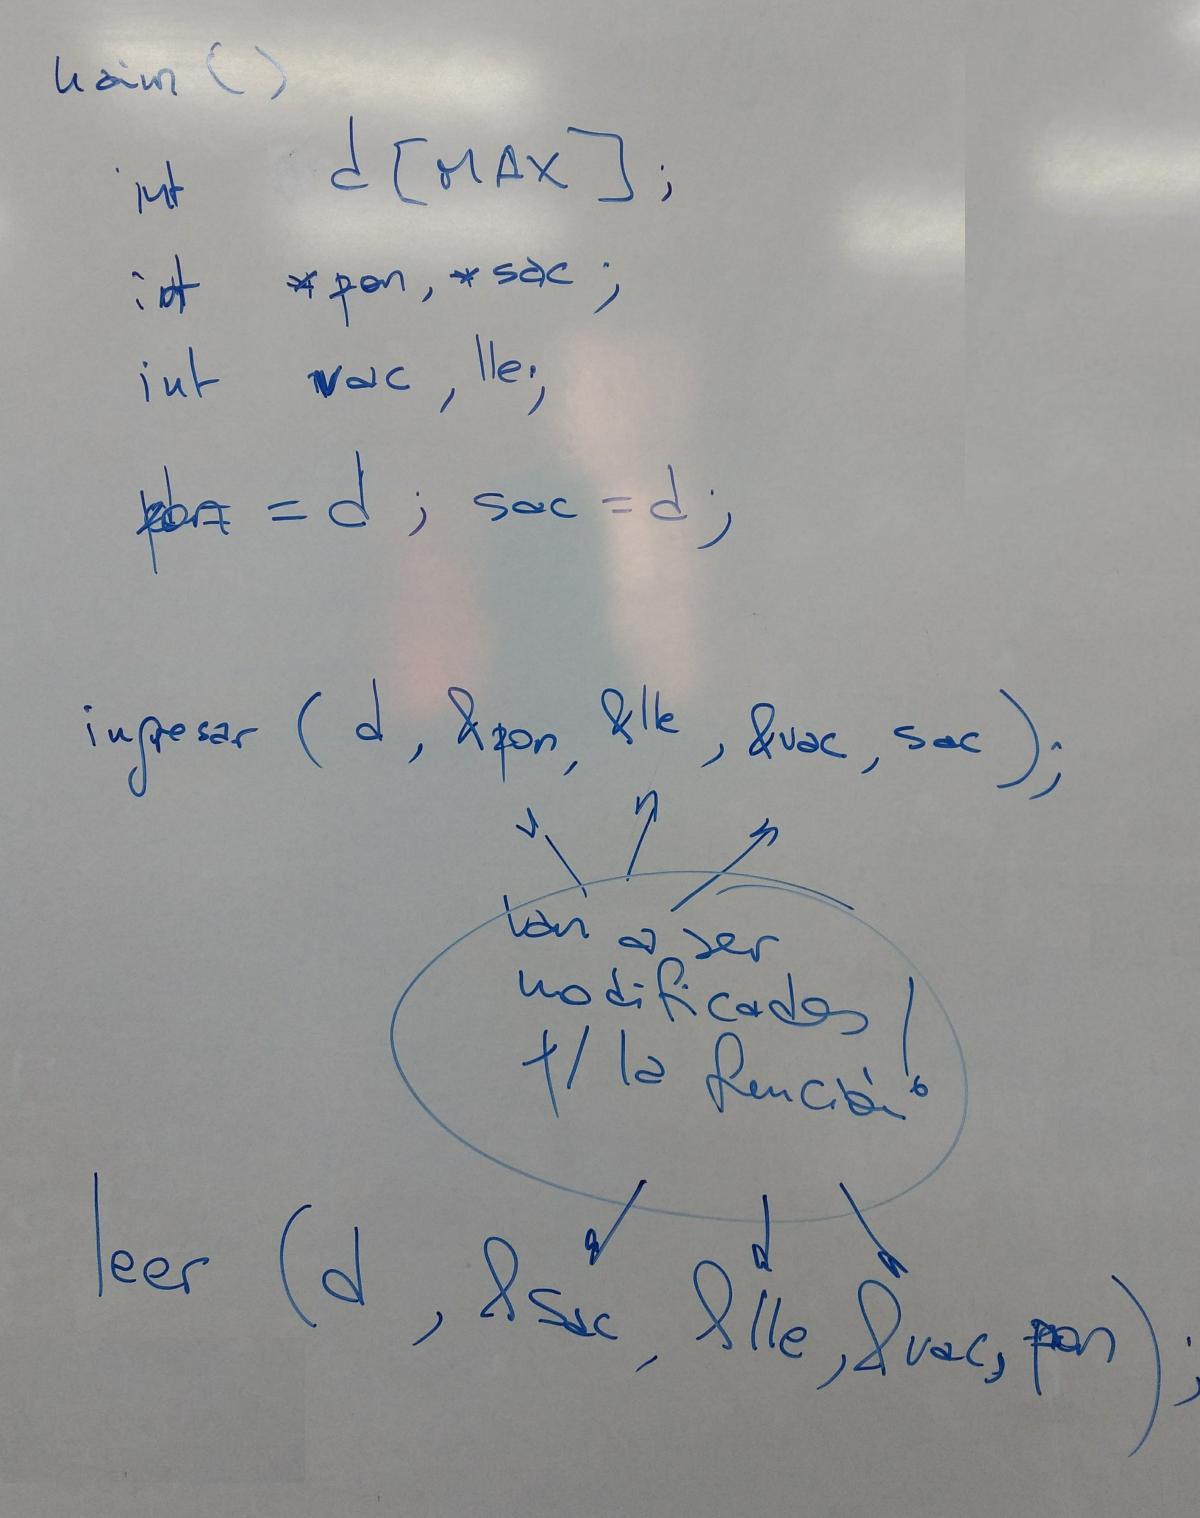 main ()
int d[MAX];
int *pon, *sac;
int vac, lle;
pon = d; sac = d;
ingresar (d, &pon, &lle, &vac, sac);
van a ser
modificados
p/ la función
leer (d, &sac, &lle, &vac, pon);